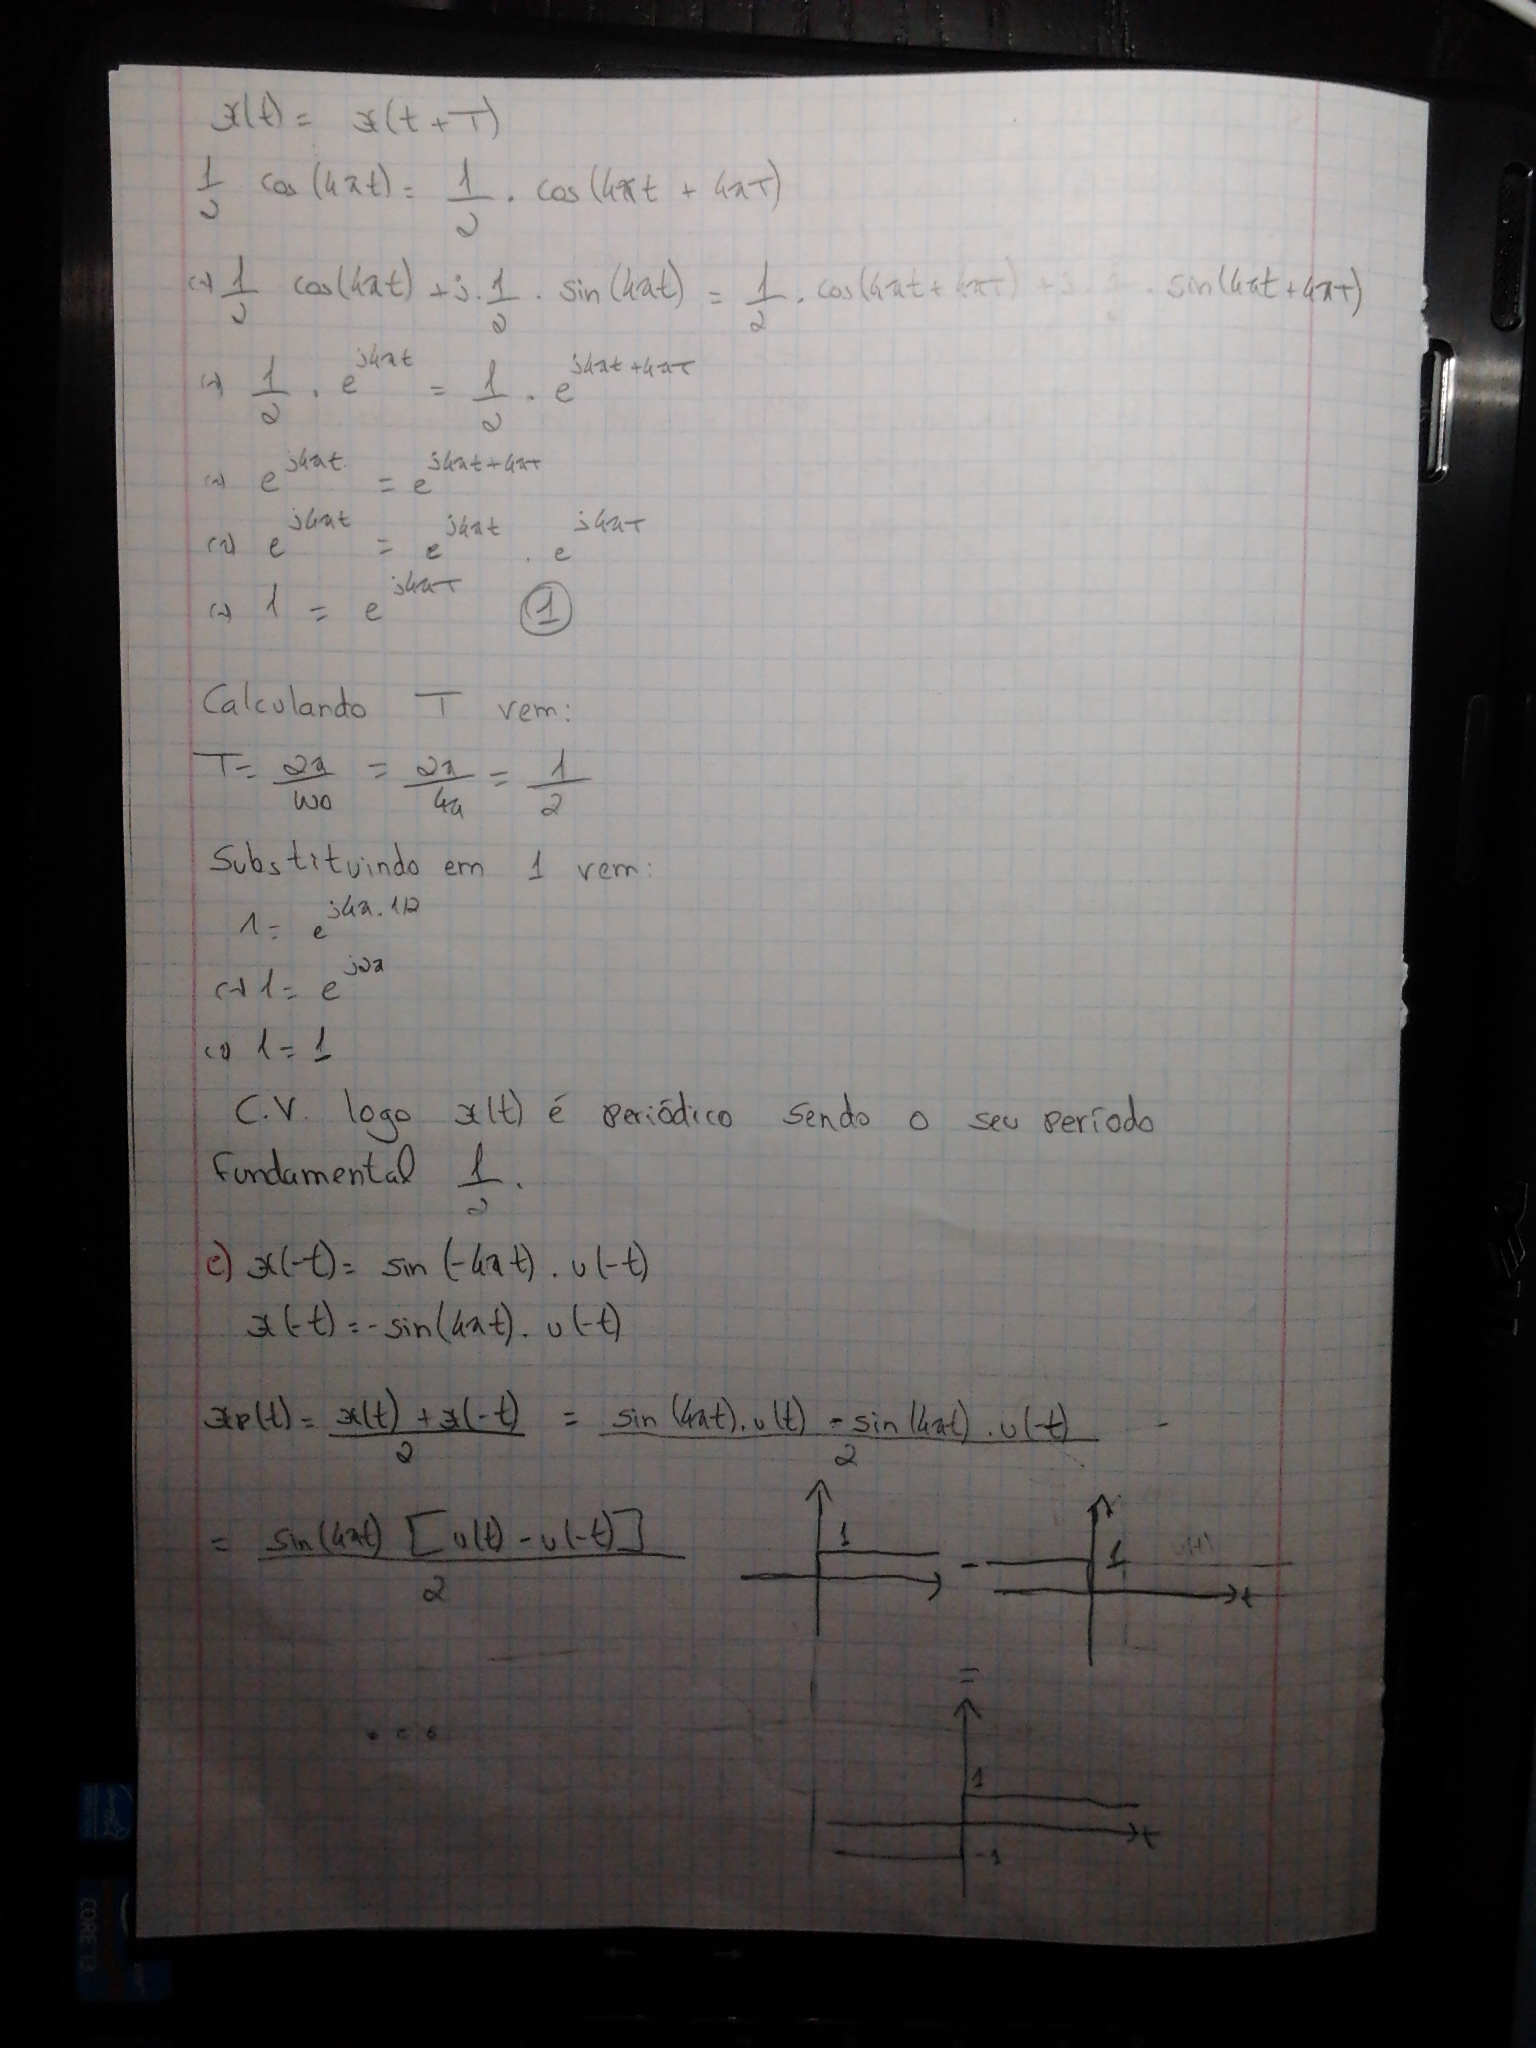 x(t) = x(t + T)
1/2 cos(4πt) = 1/2 . cos(4πt + 4πT)
(=) 1/2 cos(4πt) + j . 1/2 . sin(4πt) = 1/2 . cos(4πt + 4πT) + j . 1/2 . sin(4πt + 4πT)
(=) 1/2 . e^{j4πt} = 1/2 . e^{j4πt + 4πT}
(=) e^{j4πt} = e^{j4πt + 4πT}
(=) e^{j4πt} = e^{j4πt} . e^{j4πT}
(=) 1 = e^{j4πT} ①
Calculando T vem:
T = 2π/w0 = 2π/4π = 1/2
Substituindo em 1 vem:
1 = e^{j4π . 1/2}
(=) 1 = e^{j2π}
(=) 1 = 1
C.V. logo x(t) é periódico sendo o seu período
fundamental 1/2 .
c) x(-t) = sin(-4πt) . u(-t)
x(-t) = -sin(4πt) . u(-t)
xp(t) = (x(t) + x(-t))/2 = (sin(4πt) . u(t) - sin(4πt) . u(-t))/2 -
= sin(4πt) [u(t) - u(-t)]/2
1 - 1 t
=
...
1
t
-1
CORE i3